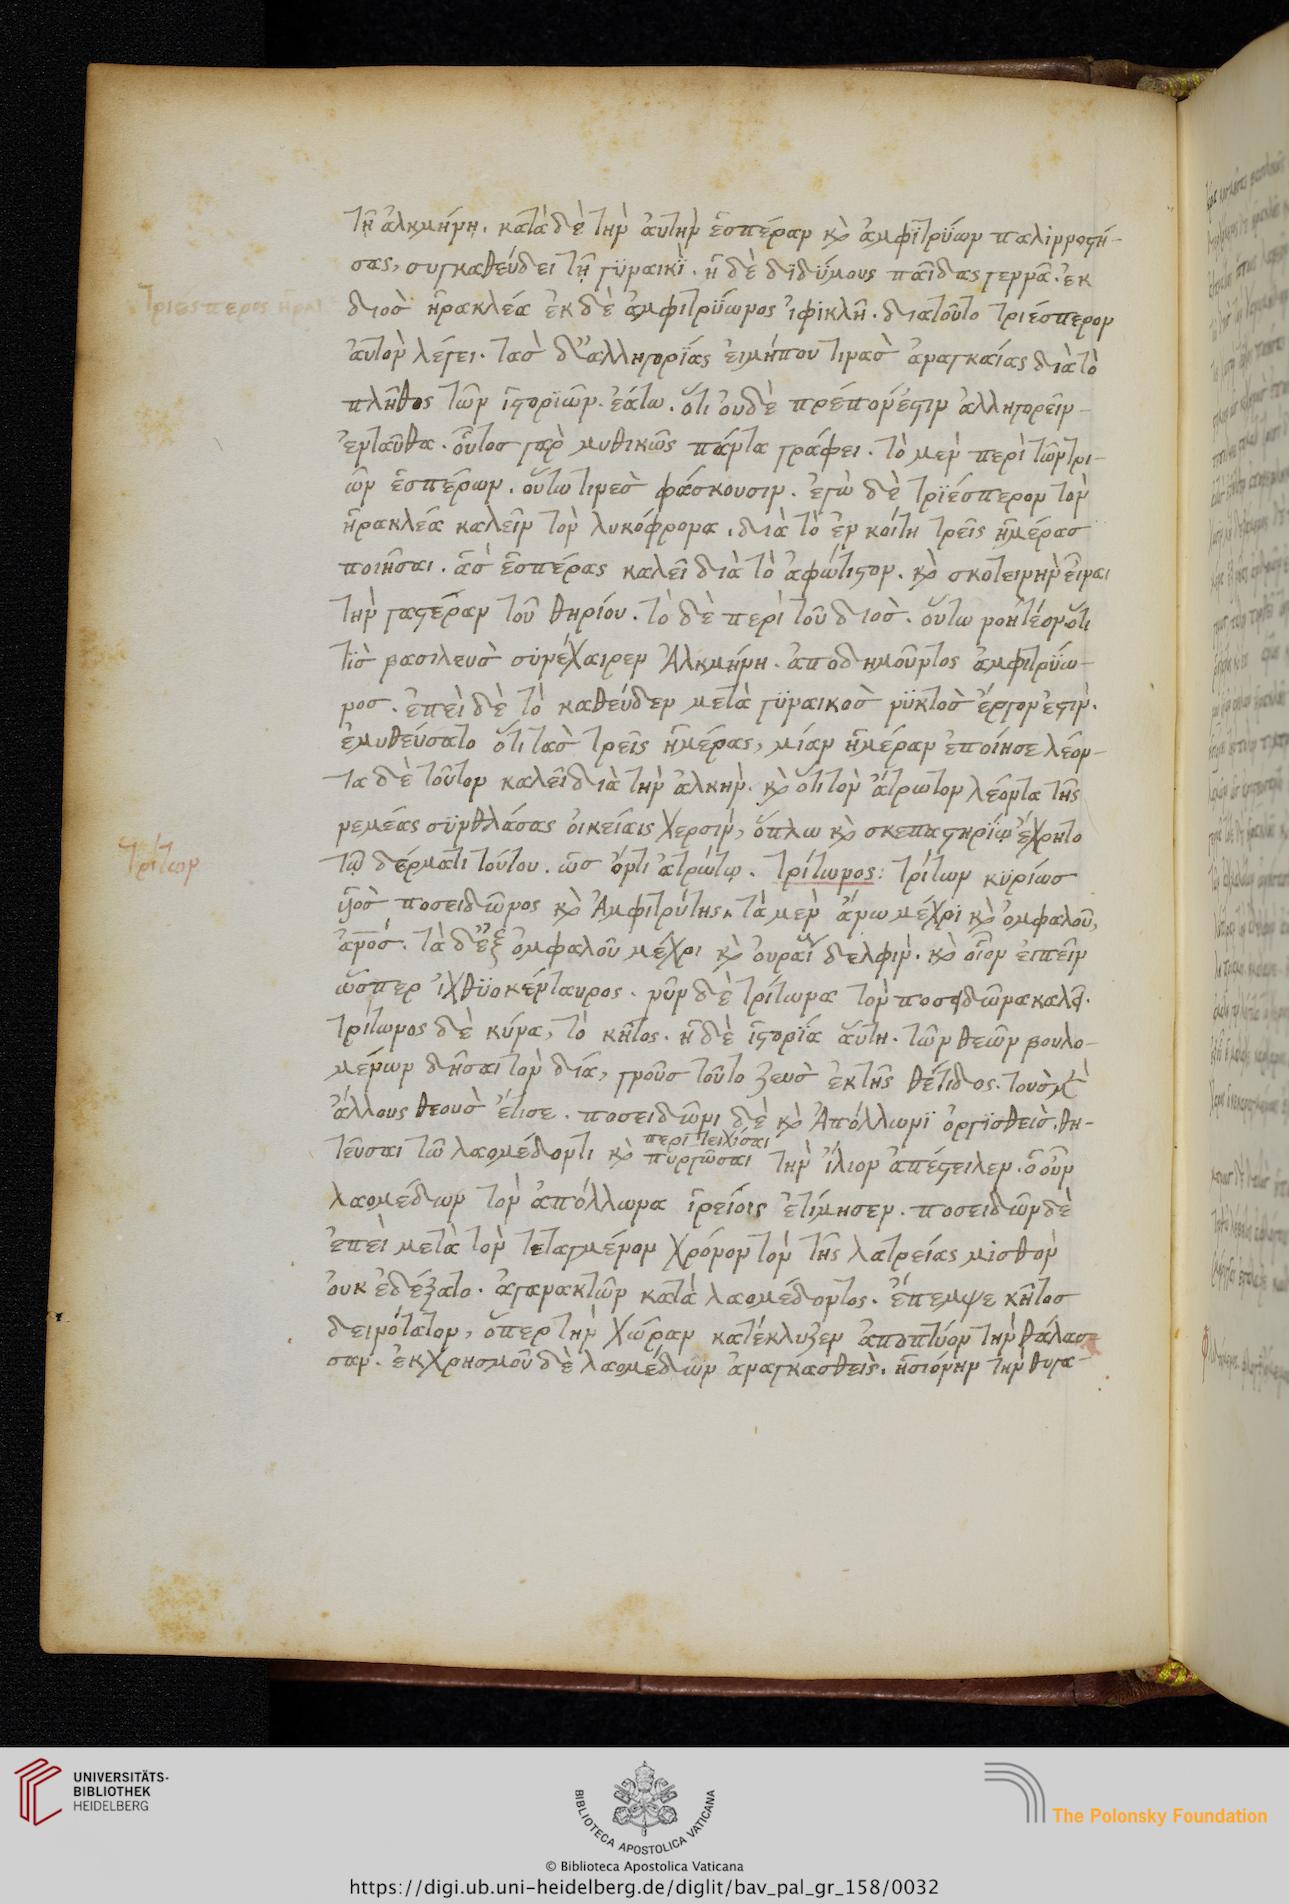 τῆ ἀλκμήνη. κατὰ δὲ τὴν ἀυτὴν ἑσπέραν κὶ ἀμφϊτρύων παλιννοστή-
σας, συγκαθεύδει τῆ γϋναικϊ. ἡ δὲ δϊδΰμους παῖδας γεννᾶ. ἐκ
τριεσπερος ἡρακλ
διὸσ ἡρακλέα ἐκ δὲ ἀμφιτρΰωνος ἰφικλῆ. διατοῦτο τριέσπερον
ἀυτὸν λέγει. τὰσ δ' ἀλληγορΐας ἐιμήπου τινὰσ ἀναγκαίας διὰ τὸ
πλῆθος τῶν ἱστορϊῶν. ἐάτω. ὅτι ὀυδὲ πρέπον ἐστὶν ἀλληγορεῖν-
ἐνταῦθα. οὗτοσ γὰρ μυθικῶς πάντα γράφει. τὸ μεν περὶ τῶν τρι-
ῶν ἑσπέρων. οὕτω τινεσ φάσκουσιν. ἐγὼ δὲ τρϊέσπερον τὸν
ἡρακλέα καλεῖν τὸν λυκόφρονα. διὰ τὸ ἐν κοίτη τρεῖς ἡμέρασ
ποιῆσαι. ἅσ ἑσπέρας καλεῖ διὰ τὸ ἀφώτιστον. κὶ σκοτεινὴν εἶναι
τὴν γαστέραν τοῦ θηρίου. τὸ δὲ περὶ τοῦ διοσ. οὕτω νοητέον ὅτι
τϊσ βασιλευσ σϋνέχαιρεν Ἀλκμήνη. ἀποδημοῦντος ἀμφιτρΰω-
νοσ. ἐπεὶ δὲ τὸ καθεύδεν μετὰ γϋναικὸσ νϋκτὸσ ἔργον ἐστὶν.
ἐμυθεύσατο ὅτι τὰσ τρεῖς ἡμέρας, μίαν ἡμέραν ἐποίησε λέον-
τα δὲ τοῦτον καλεῖ διὰ τὴν ἀλκὴν. κὶ ὅτι τὸν ἄτρωτον λέοντα τῆς
νεμέας σϋνθλάσας ὀικείαις χερσὶν, ὅπλω κὶ σκεπαστηρΐῳ ἐχρητο
Τρίτων
τῶ δέρματι τούτου. ὡσ ὄντι ἀτρώτῳ. τρίτωνος: τρίτων κϋρίωσ
υἱὸσ ποσειδῶνος κὶ Ἀμφιτρίτης. τὰ μεν ἄνω μέχρι κὶ ὀμφαλοῦ,
ἀν̅οσ. τὰ δ' ἐξ ὀμφαλοῦ μέχρι κὶ ὀυρᾶσ δελφὶν. κὶ οἷον ἐιπεῖν
ὥσπερ ἰχθϋοκένταυρος. νῦν δὲ τρίτωνα τὸν ποσειδῶνα καλεῖ.
τρίτωνος δὲ κύνα, τὸ κῆτος. ἡ δὲ ἱστορΐα ἅυτη. τῶν θεῶν βουλο-
μένων δῆσαι τὸν δία, γνοῦσ τοῦτο ζευσ ἐκ τῆς θέτιδος. τοὺσ μὲν
ἄλλους θεουσ ἔτισε. ποσειδῶνι δὲ κὶ Ἀπόλλωνϊ ὀργϊσθεὶσ. θη-
περιτειχίσαι
τεῦσαι τῶ λαομέδοντι κὶ πυργῶσαι τὴν ἴλιον ἀπέστειλεν. ὁ οὖν
λαομέδων τὸν ἀπόλλωνα ἱρείοις ἐτίμησεν. ποσειδῶν δὲ
ἐπεὶ μετὰ τὸν τεταγμένον χρόνον τὸν τῆς λατρείας μισθὸν
ὀυκ ἐδέξατο. ἀγανακτῶν κατὰ λαομέδοντος. ἔπεμψε κῆτοσ
δεινότατον, ὅπερ τὴν χῶραν κατέκλυζεν ἀποπτύον τὴν θάλασ
σαν. ἐκ χρησμοῦ δὲ λαομέδων ἀναγκασθεὶς. ἡσιόνην τὴν θυγα-
UNIVERSITÄTS-
BIBLIOTHEK
HEIDELBERG
BIBLIOTECA APOSTOLICA VATICANA
The Polonsky Foundation
© Biblioteca Apostolica Vaticana
https://digi.ub.uni-heidelberg.de/diglit/bav_pal_gr_158/0032